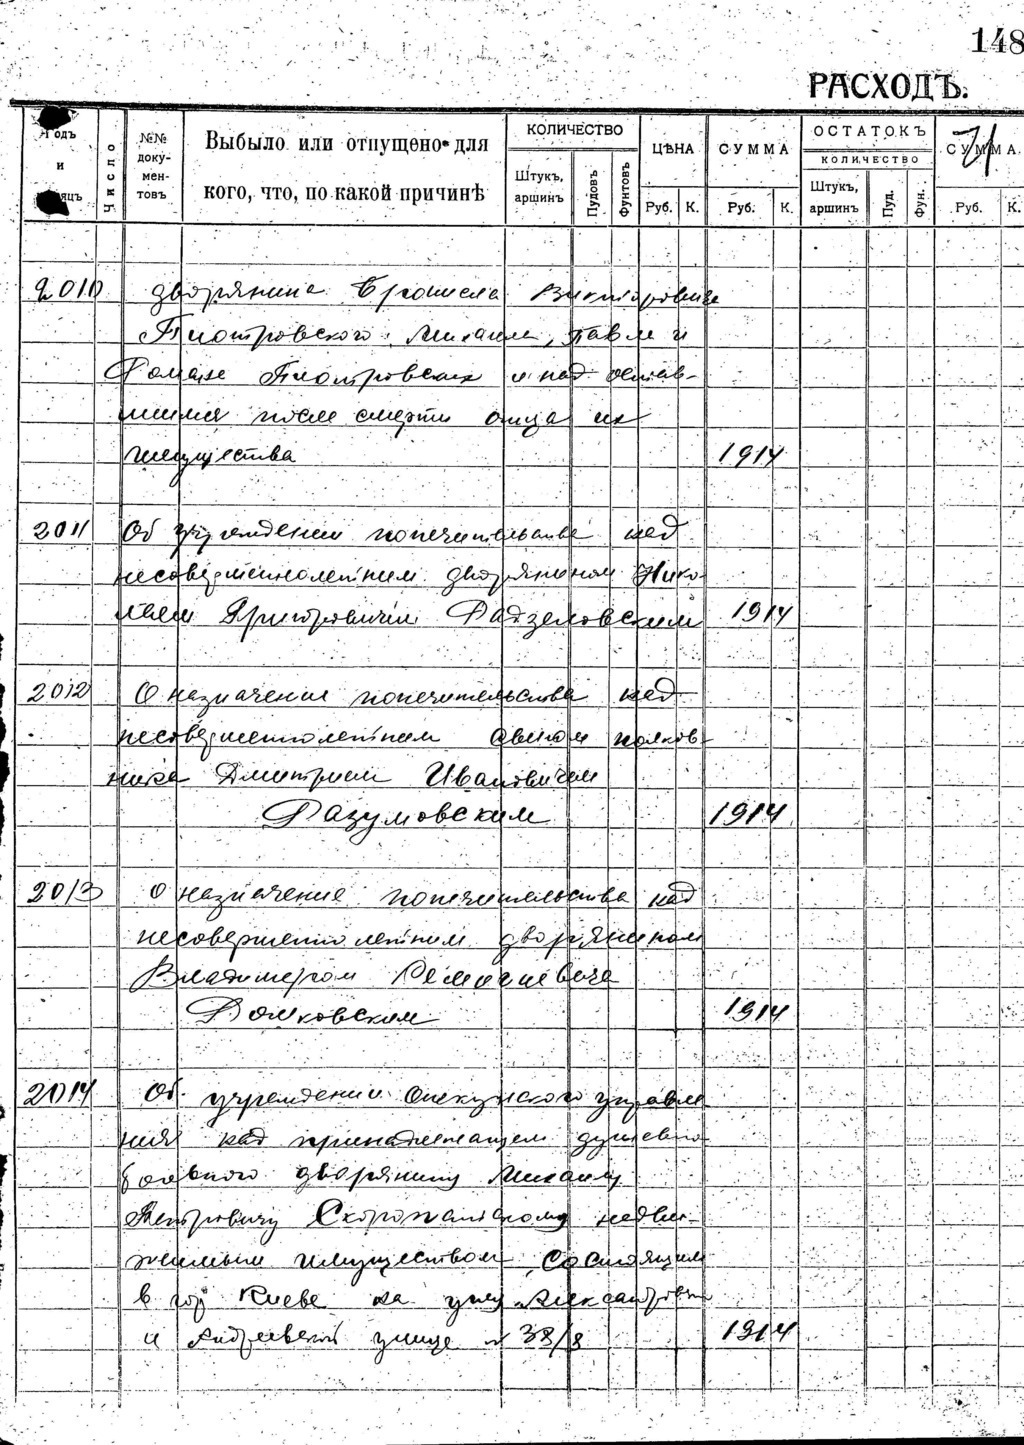 148
РАСХОДЪ.
Годъ и мѣсяцъ
Число
№№ доку-мен-товъ
Выбыло или отпущено для
кого, что, по какой причинѣ
КОЛИЧЕСТВО
Штукъ, аршинъ
Пудовъ
Фунтовъ
ЦѢНА
Руб. К.
СУММА
Руб. К.
ОСТАТОКЪ
КОЛИЧЕСТВО
Штукъ, аршинъ
Пуд.
Фун.
СУММА
Руб. К.
71
2010 дворянина Бронисла Викторовича
Пиотровского Михаила, Павла и
Романа Пиотровских и над остав-
шимся после смерти отца их
имущества 1914
2011 Об учреждении попечительства над
несовершеннолетним дворянином Нико-
лаем Григоровичем Радзеловским 1914
2012 О назначение попечительства над
несовершеннолетним сыном полков-
ника Дмитрием Ивановичем
Разумовским 1914
2013 О назначение попечительства над
несовершеннолетним дворянином
Владимером
Ромковским 1914
2014 Об учреждении Опекунского управле
ния над принадлежащем душевно
больного дворянину Михаилу
Петровичу Скоропатскому недви-
жимым имуществом состоящим
в гор Киеве на углу Александровск
и Андреевской улице № 38/8 1914